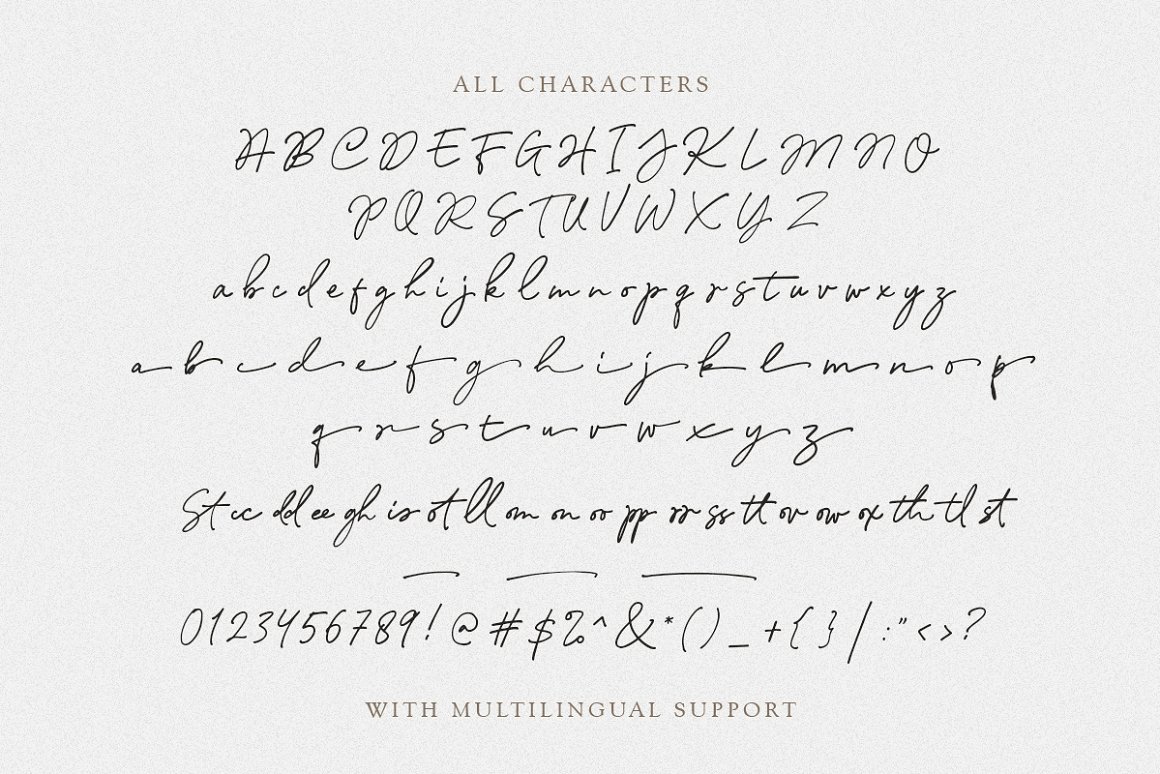 ALL CHARACTERS
A B C D E F G H I J K L M N O
P Q R S T U V W X Y Z
a b c d e f g h i j k l m n o p q r s t u v w x y z
a b c d e f g h i j k l m n o p
q r s t u v w x y z
St cc dd ee gh is ot ll om on oo pp rr ss tt ov ow ox th tl st
0 1 2 3 4 5 6 7 8 9 ! @ # $ % ^ & * ( ) _ + { } / : " < > ?
WITH MULTILINGUAL SUPPORT